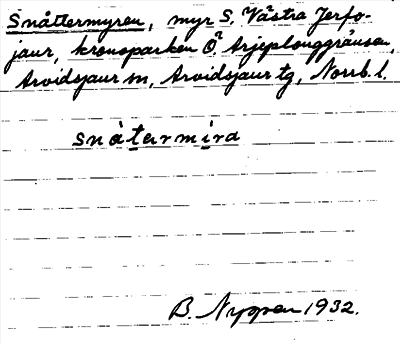 Snåttermyren, myr S. Västra Jerfo-
jaur, kronoparken Ö. Arjeplouggränsen,
Arvidsjaur sn, Arvidsjaur tg, Norrb. l.
snåtermira
B. Nyppen 1932.